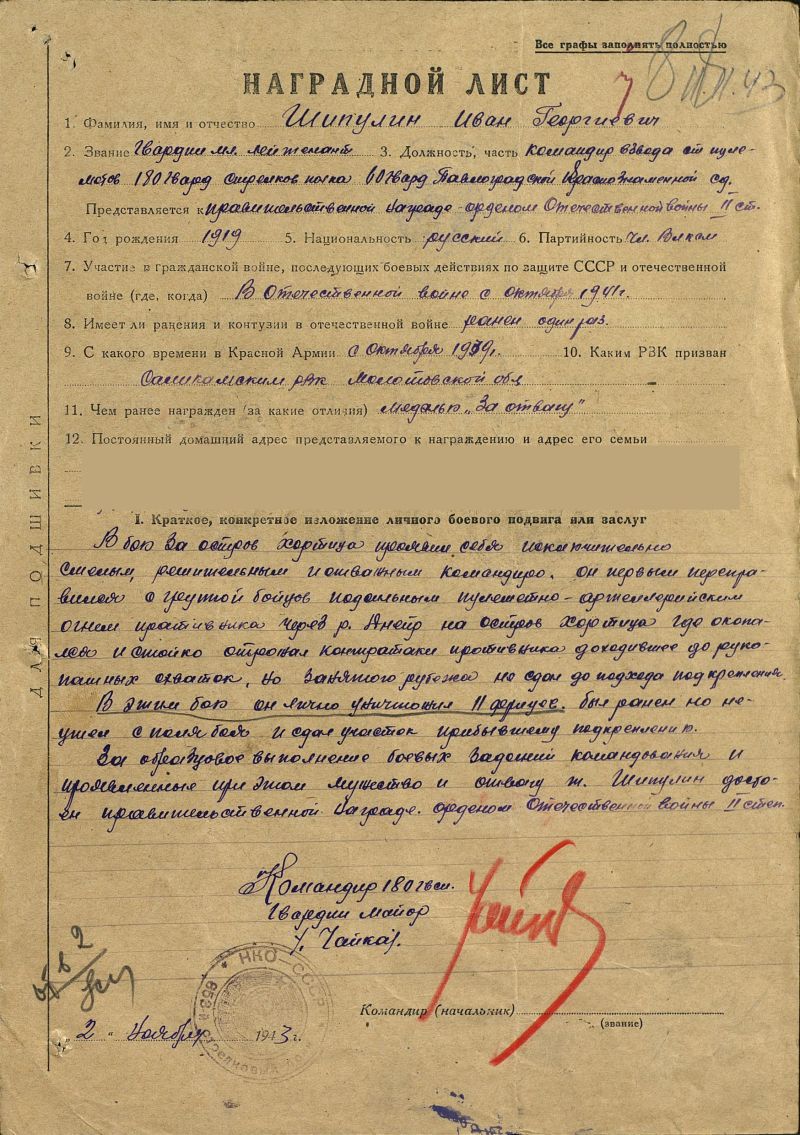 Все графы заполнять полностью
11.11.43
НАГРАДНОЙ ЛИСТ
1. Фамилия, имя и отчество Шипулин Иван Георгиевич
2. Звание Гвардии мл. лейтенант 3. Должность, часть Командир взвода ст. пуле-
метов 180 гвард стрелков полка 60 гвард Павлоградской Краснознаменной сд.
Представляется к правительственной награде - орденом Отечественной войны II ст.
4. Год рождения 1919 5. Национальность русский 6. Партийность чл. Влксм
7. Участие в гражданской войне, последующих боевых действиях по защите СССР и отечественной
войне (где, когда) В Отечественной войне с октября 1941г.
8. Имеет ли ранения и контузии в отечественной войне ранен один раз.
9. С какого времени в Красной Армии с октября 1939г. 10. Каким РВК призван
Саликамским рвк Молотовской обл
11. Чем ранее награжден (за какие отличия) медалью „За отвагу"
12. Постоянный домашний адрес представляемого к награждению и адрес его семьи
I. Краткое, конкретное изложение личного боевого подвига или заслуг
В бою за остров Хортица проявил себя исключительно
смелым, решительным и отважным командиро. он первым перепра-
вился с групой бойцов под сильным пулеметно-артеллерийским
огнем противника через р. Днепр на остров Хортица где окопа-
лся и стойко отражал контратаки противника доходившее до руко-
пашных схваток, но занятого рубежа не сдал до подхода подкрепления.
В этим бою он лично уничтожил 11 фрицев. был ранен но не
ушел с поля боя и сдал участок прибывшему подкреплению.
За образцовое выполнение боевых заданий командования и
проявленные при этом мужество и отвагу т. Шипулин досто-
ен правительственной награде. орденом Отечественной войны II степ.
Командир 180 гвсп.
Гвардии майор
/. Чайка/.
НКО СССР
„2" ноября 1943 г.
Командир (начальник)
(звание)
ДЛЯ ПОДШИВКИ